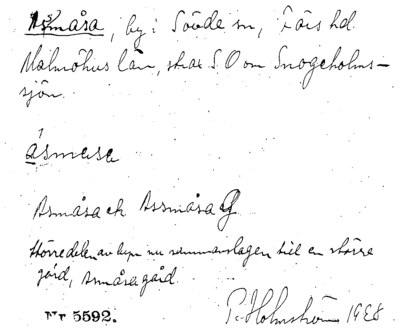 Åsmåsa, by i Sövde sn, Färs hd.
Malmöhus län, strax S.O om Snogeholms-
sjön.
åsmase
Asmåsa ek Assmåsa G
Större delen av byn nu sammanslagen till en större
gård, Asmåsa gård.
Nr 5592.
P. Holmström 1928